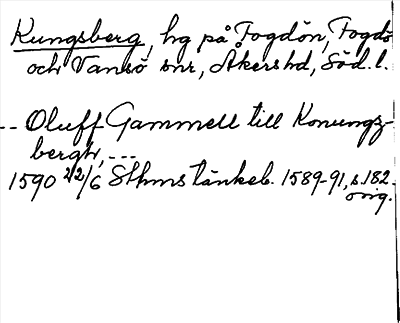 Kungsberg, hg på Fogdön, Fogdö
och Vansö snr, Åkershd, Söd. l.
-- Oluff Gammell till Konungz-
bergh, ---
1590 22/6 Sthms tänkeb. 1589-91, s. 182.
orig.